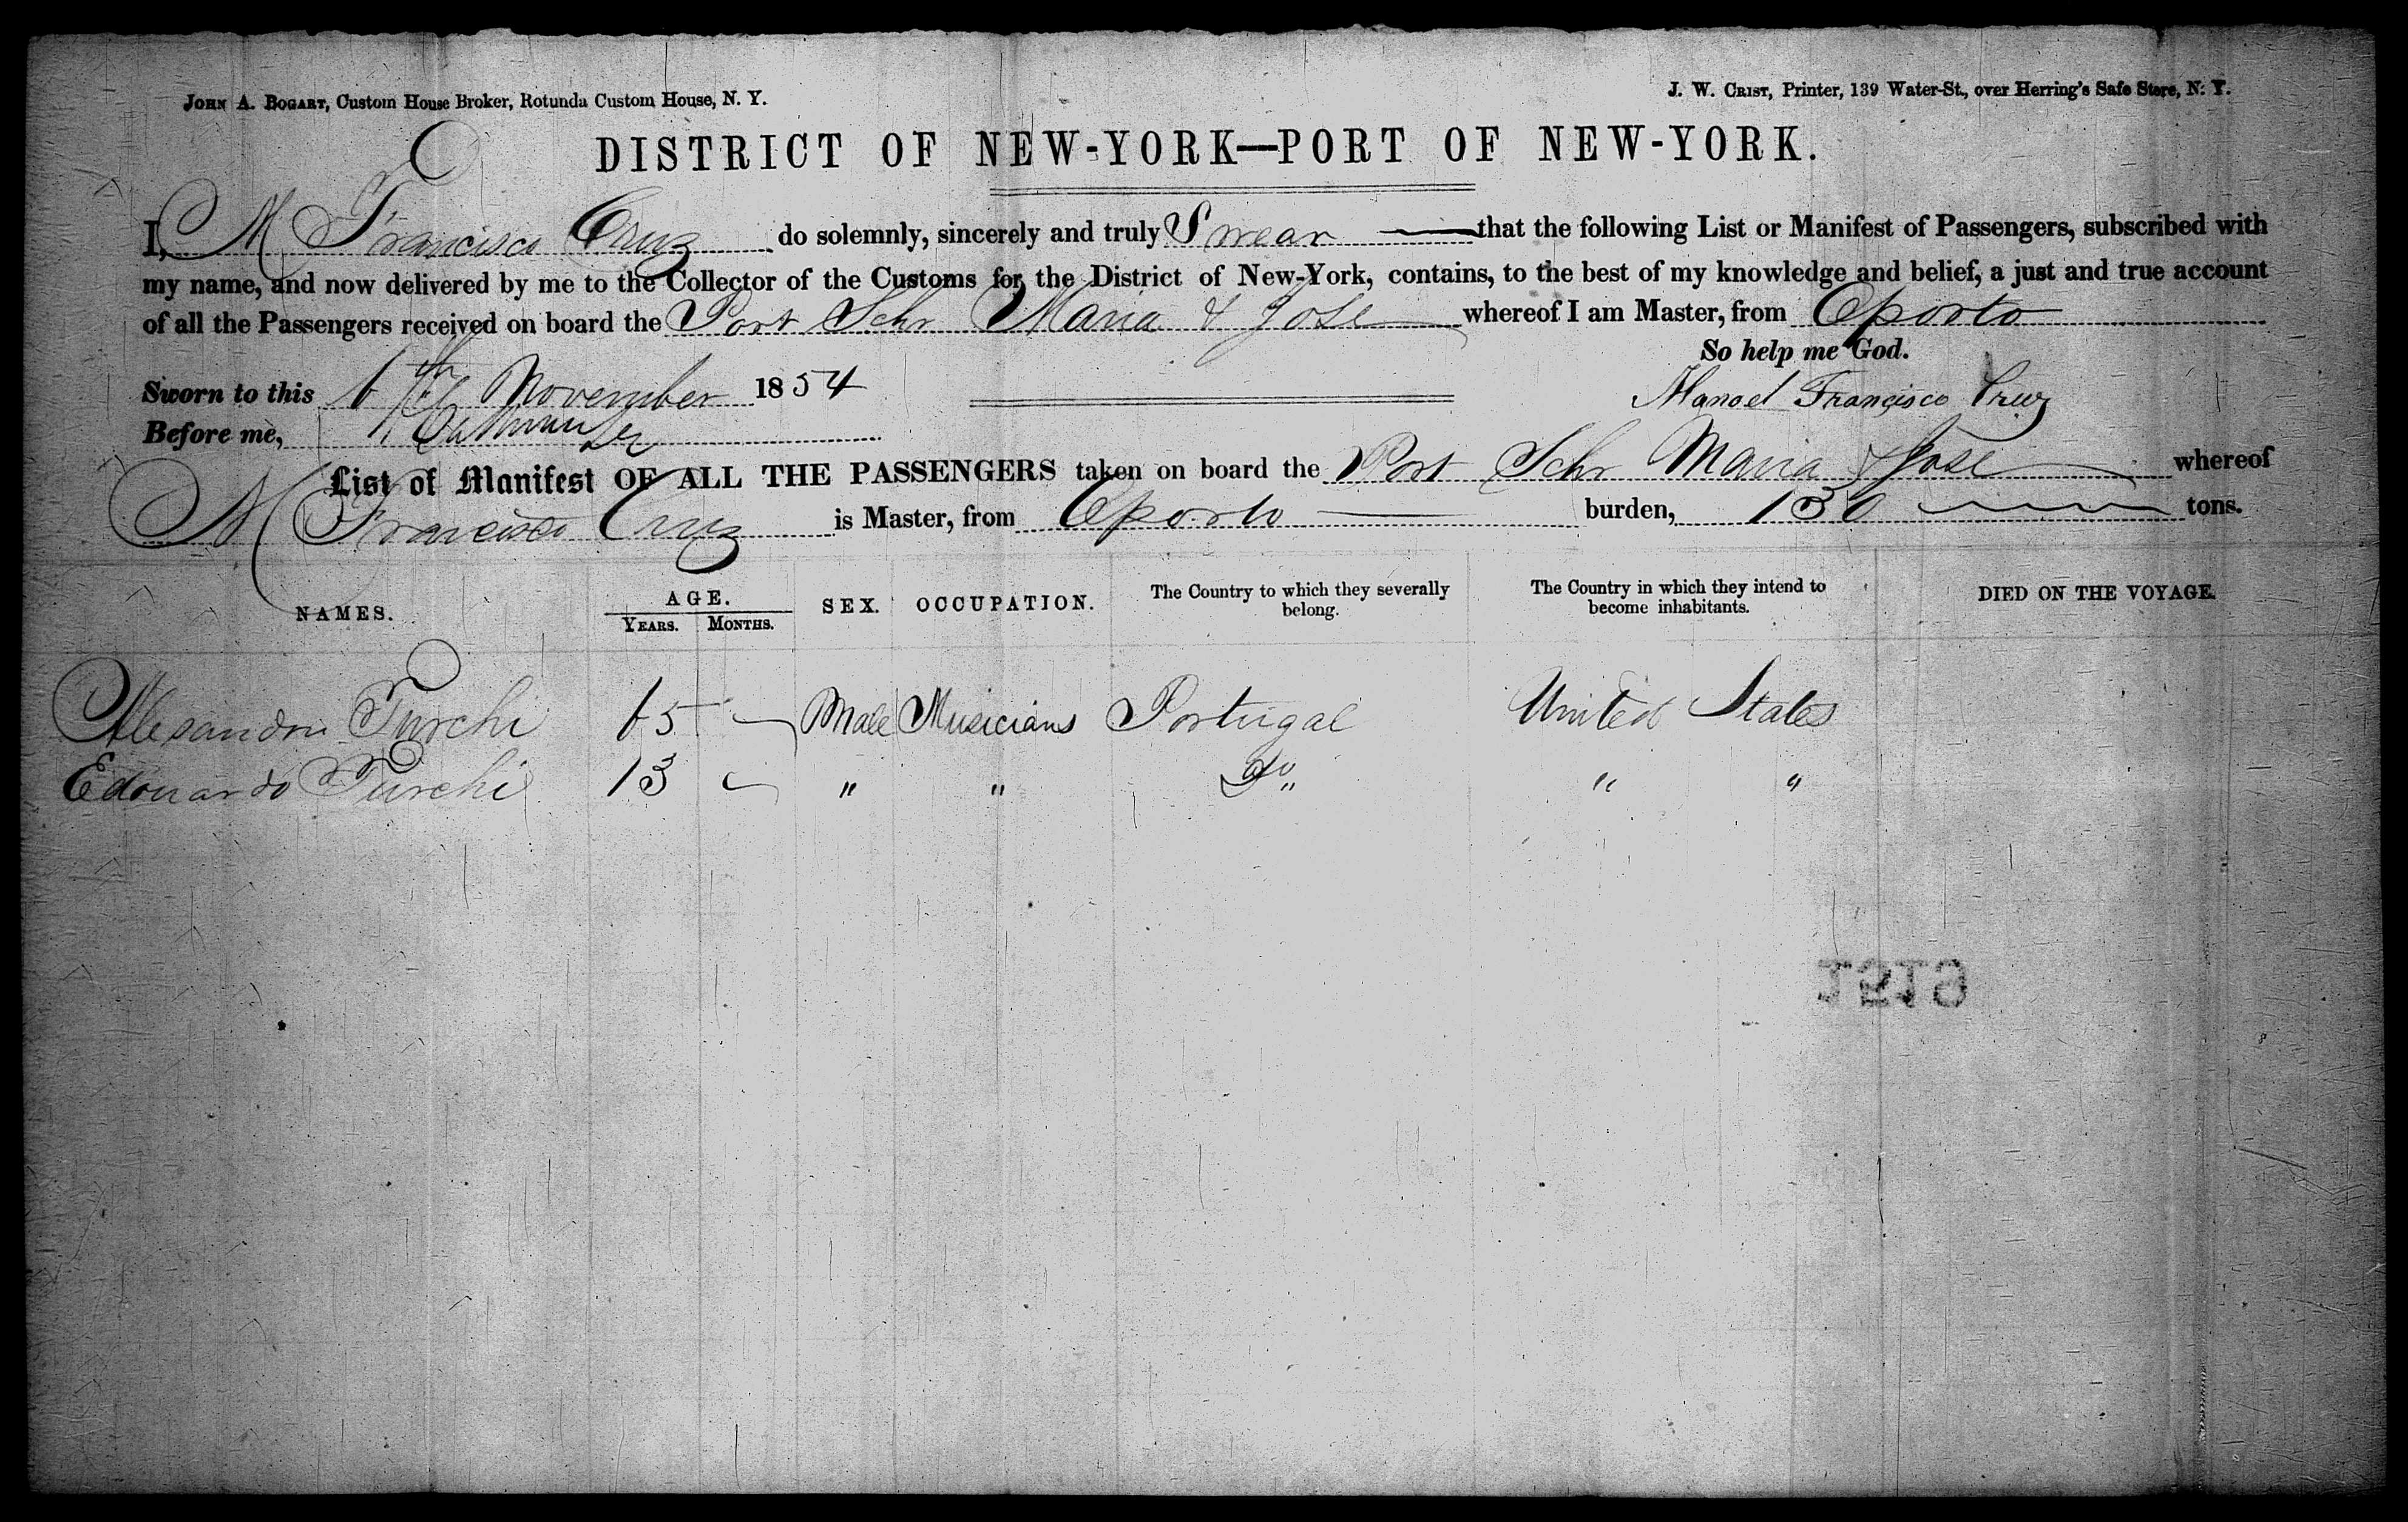 JOHN A. BOGART, Custom House Broker, Rotunda Custom House, N. Y.
J. W. CRIST, Printer, 139 Water-St., over Herring's Safe Store, N. Y.
DISTRICT OF NEW-YORK—PORT OF NEW-YORK.
I, M Francisco Cruz do solemnly, sincerely and truly Swear that the following List or Manifest of Passengers, subscribed with
my name, and now delivered by me to the Collector of the Customs for the District of New-York, contains, to the best of my knowledge and belief, a just and true account
of all the Passengers received on board the Port Schr Maria & Jose whereof I am Master, from Oporto
So help me God.
Sworn to this November 1854
Manoel Francisco Cruz
Before me,
List of Manifest OF ALL THE PASSENGERS taken on board the Port Schr Maria & Jose whereof
M Francisco Cruz is Master, from Oporto burden, 130 tons.
NAMES. AGE. SEX. OCCUPATION. The Country to which they severally belong. The Country in which they intend to become inhabitants. DIED ON THE VOYAGE.
YEARS. MONTHS.
Alesandro Turchi Male Musicians Portugal United States
Edouardo Turchi 13 " " Do " "
1519